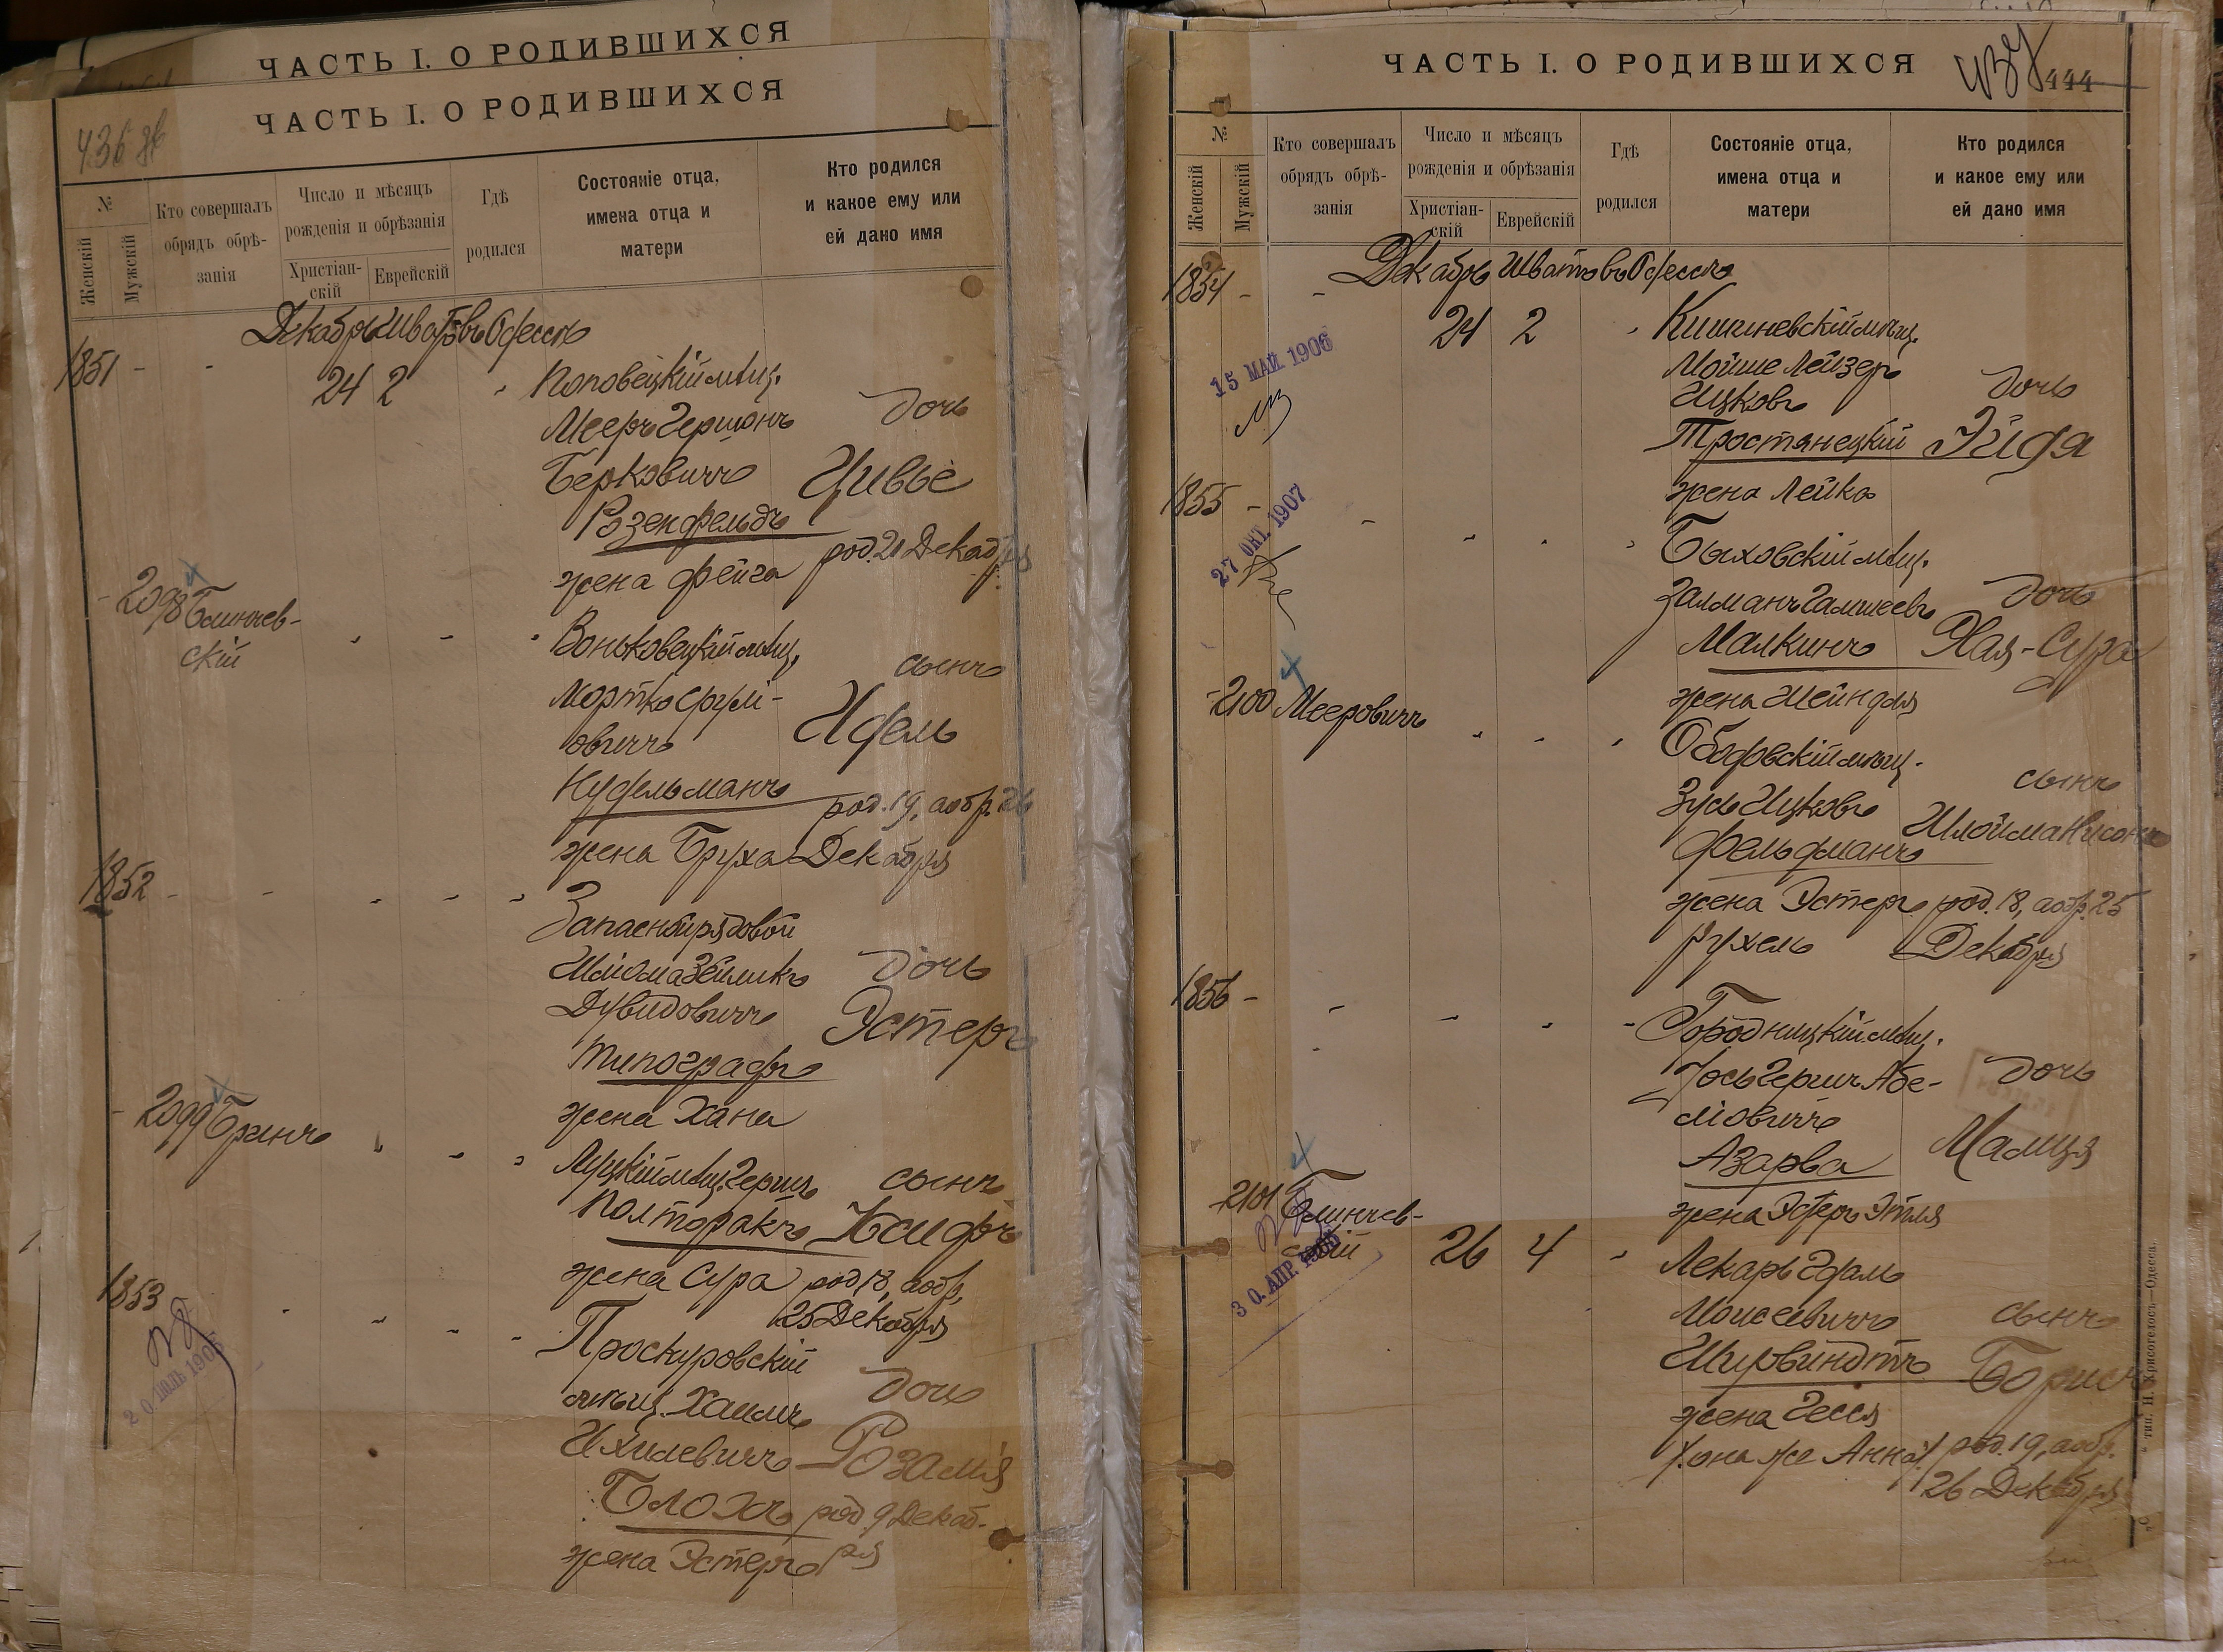 ЧАСТЬ I. О РОДИВШИХСЯ
ЧАСТЬ I. О РОДИВШИХСЯ
436
№
Женскій
Мужскій
Кто совершалъ
обрядъ обрѣ-
занія
Число и мѣсяцъ
рожденія и обрѣзанія
Христіан-
скій
Еврейскій
Гдѣ
родился
Состояніе отца,
имена отца и
матери
Кто родился
и какое ему или
ей дано имя
Декабрь Шватъ въ Одессѣ
1851 - - 24 2 "
Поповецкій мѣщ.
Мееръ Гершонъ
Берковичъ
Розенфельдъ
жена Фейга
дочь
Цивье
род. 21 Декабря
- 2098 Блинчев-
скій
Воньковецкій мѣщ.
Мортко Срули-
овичъ
Нудельманъ
жена Бруха
сынъ
Идель
род. 19, аобр. 26
Декабря
1852 - - - - -
Запасный рядовой
Шлома Зейликъ
Дувидовичъ
Типографъ
жена Хана
дочь
Эстеръ
- 2099 Бринъ
Луцкій мѣщ. Гершъ
Полторакъ
жена Сура
сынъ
род. 18, аобр.
25 Декабря
1853
20 ІЮЛЬ
Проскуровскій
мѣщ. Хаимъ
Ихилевичъ
Блохъ
жена Эстеръ
дочь
Розалія
род. 9 Декаб-
ря
ЧАСТЬ I. О РОДИВШИХСЯ
444
№
Женскій
Мужскій
Кто совершалъ
обрядъ обрѣ-
занія
Число и мѣсяцъ
рожденія и обрѣзанія
Христіан-
скій
Еврейскій
Гдѣ
родился
Состояніе отца,
имена отца и
матери
Кто родился
и какое ему или
ей дано имя
Декабрь Шватъ въ Одессѣ
1854 - - 24 2 "
15 МАЙ 1906
Кишиневскій мѣщ.
Мойше Лейзеръ
Ицковъ
Тростянецкій
жена Лейка
дочь
Эйдя
1855 - - - - -
27 ОКТ. 1907
Быховскій мѣщ.
Залманъ
Малкинъ
жена Шейндля
дочь
Хая-Сура
- 2100 Мееровичъ
Ободовскій мѣщ.
Зусь Ицковъ
Фельдманъ
жена Эстеръ
Рухель
сынъ
Шлойма Нисонъ
род. 18, аобр. 25
Декабря
1856 - - - - -
Городницкій мѣщ.
Іось Гершъ Абе-
ліовичъ
Азарва
жена Эстеръ Этля
дочь
Малця
- 2101 Блинчев-
скій
26 4 "
30. АПР.
Лекарь Адамъ
Моисеевичъ
Ширвиндтъ
жена Геся
(она же Анна)
сынъ
Борисъ
род. 19, аобр.
26 Декабря
тип. И. Хрисогелосъ.—Одесса.